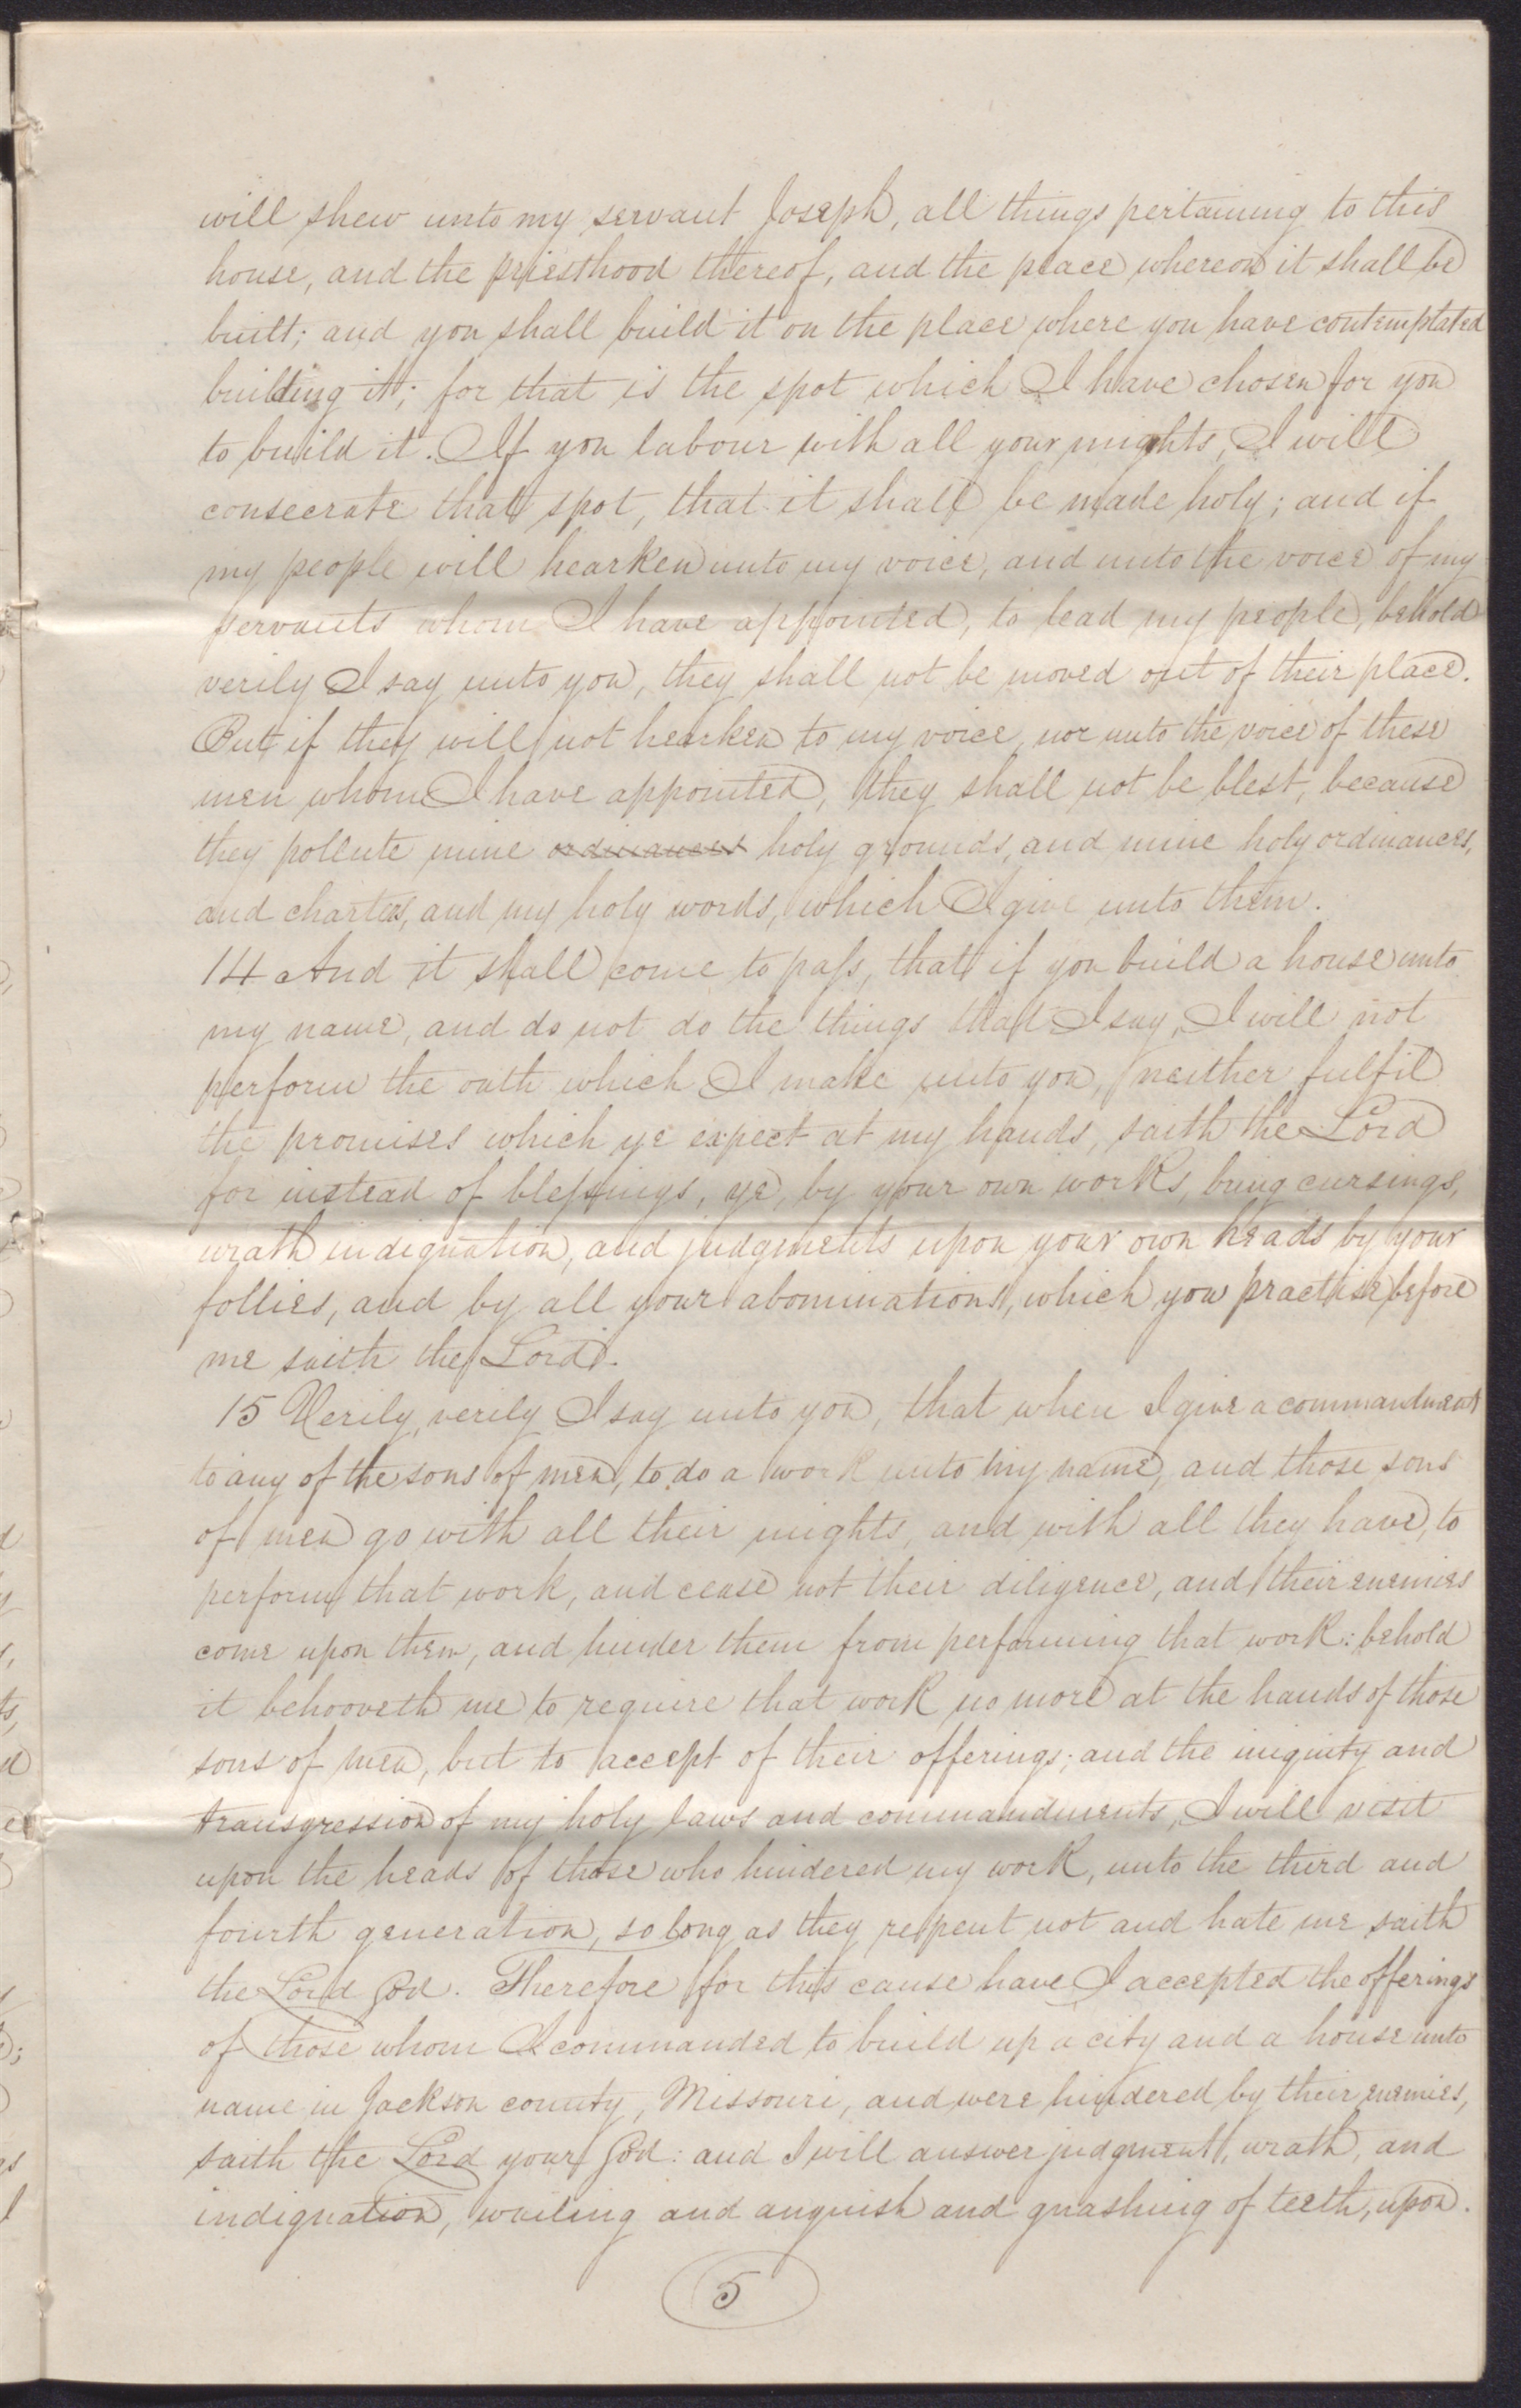 will shew unto my servant Joseph, all things pertaining to this
house, and the priesthood thereof, and the place whereon it shall be
built; and you shall build it on the place where you have contemplated
building it; for that is the spot which I have chosen for you
to build it. If you labour with all your mights, I will
consecrate that spot, that it shall be made holy; and if
my people will hearken unto my voice, and unto the voice of my
servants whom I have appointed, to lead my people, behold
verily I say unto you, they shall not be moved out of their place.
But if they will not hearken to my voice, nor unto the voice of these
men whom I have appointed, they shall not be blest, because
they pollute mine ordinances holy grounds, and mine holy ordinances,
and charters, and my holy words, which I give unto them.
14 And it shall come to pass, that if you build a house unto
my name, and do not do the things that I say, I will not
perform the oath which I make unto you, neither fulfil
the promises which ye expect at my hands, saith the Lord
for instead of blessings, ye, by your own works, bring cursings,
wrath indignation, and judgments upon your own heads by your
follies, and by all your abominations, which you practise before
me saith the Lord.
15 Verily, verily I say unto you, that when I give a commandment
to any of the sons of men, to do a work unto my name, and those sons
of men go with all their mights, and with all they have, to
perform that work, and cease not their diligence, and their enemies
come upon them, and hinder them from performing that work: behold
it behooveth me to require that work no more at the hands of those
sons of men, but to accept of their offerings; and the iniquity and
transgression of my holy laws and commandments, I will visit
upon the heads of those who hindered my work, unto the third and
fourth generation, so long as they repent not and hate me saith
the Lord God. Therefore for this cause have I accepted the offerings
of those whom I commanded to build up a city and a house unto
name in Jackson county, Missouri, and were hindered by their enemies,
saith the Lord your God: and I will answer judgment, wrath, and
indignation, wailing and anguish and gnashing of teeth, upon.
5